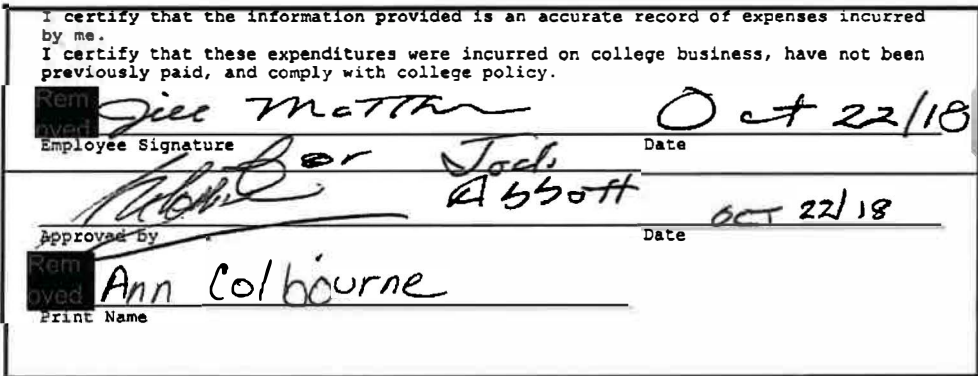 I certify that the information provided is an accurate record of expenses incurred
by me.
I certify that these expenditures were incurred on college business, have not been
previously paid, and comply with college policy.
Rem
oved
Jill Oct 22/18
Employee Signature Date
for Jodi
Abbott Oct 22/18
Approved by Date
Rem
oved Ann Colbourne
Print Name